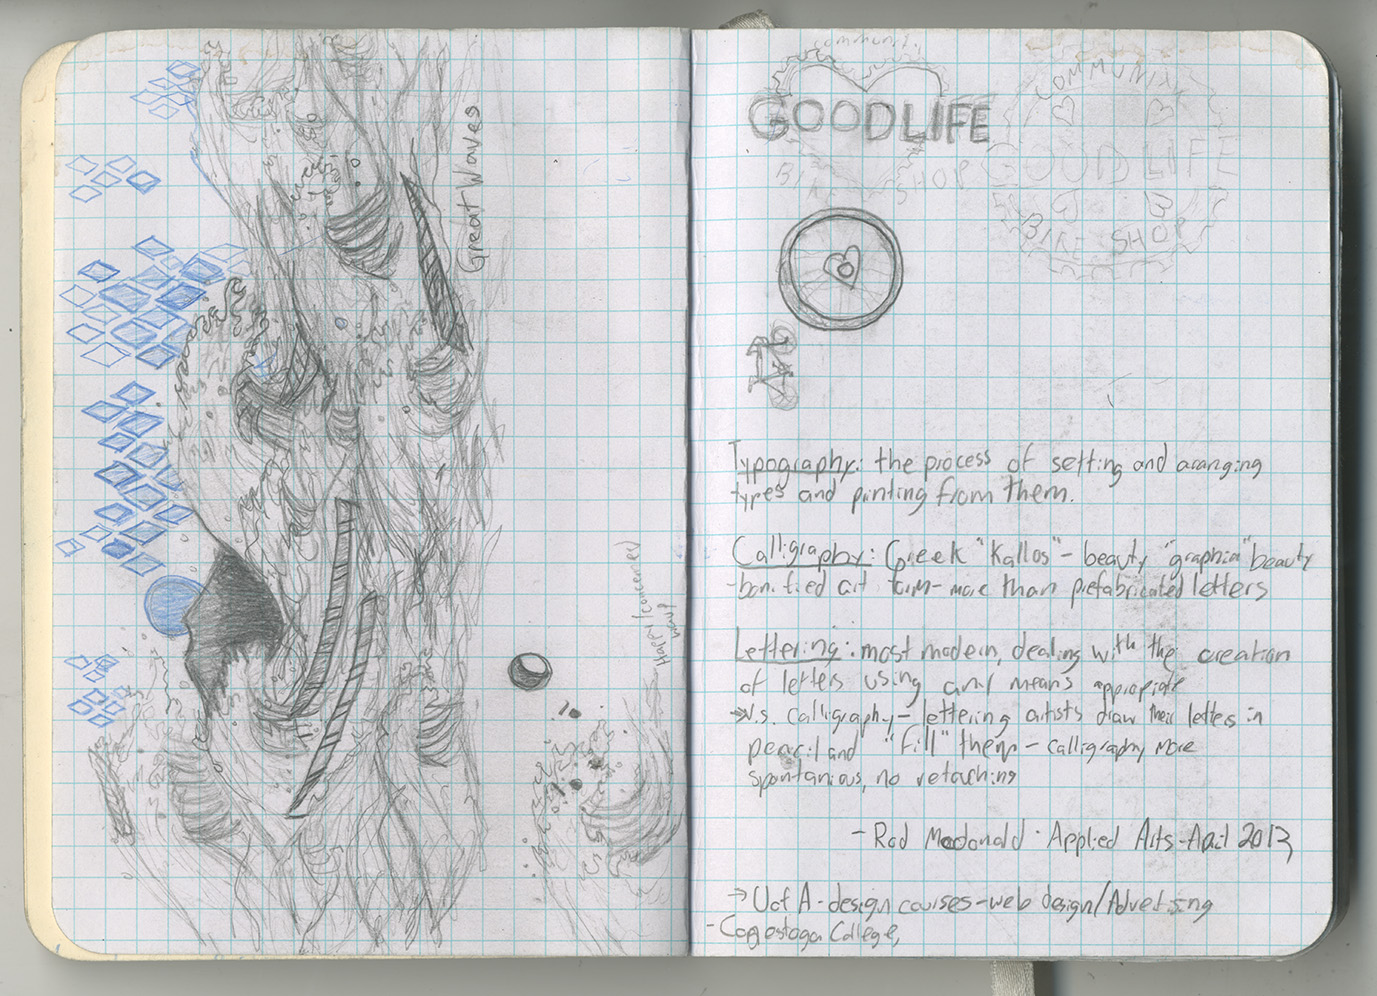 Great Waves
Happy/concerned
community
GOODLIFE
BIKE SHOP
COMMUNITY
GOODLIFE
BIKE SHOP
Typography: the process of setting and aranging
types and printing from them.
Calligraphy: Greek "Kallos" - beauty "graphia" beauty
-bonified art form - more than prefabricated letters
Lettering: most modern, dealing with the creation
of letters using any means appropiate
→ v.s. calligraphy - lettering artists draw their letters in
pencil and "fill" them - calligraphy more
spontanious, no retouching
- Rod Macdonald · Applied Arts - April 2013
→ U of A - design courses - web design/Advertising
- Congestoga College,